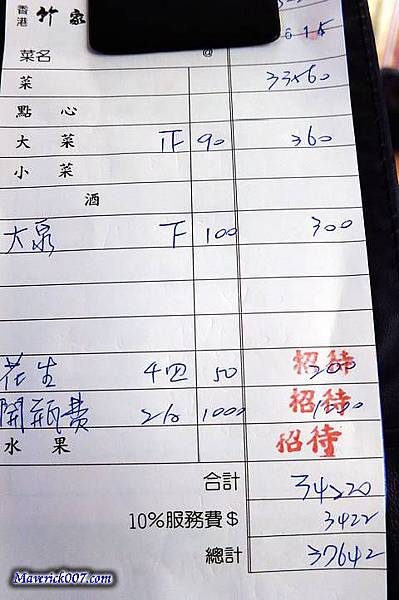 香港
615
菜名 @
菜 33560
點心
大菜 90 360
小菜
酒
大泉 下 100 300
花生 4皿 50 200 招待
開瓶費 1000 招待
水果 招待
合計 34220
10%服務費$ 3422
總計 37642
Maverick007.com